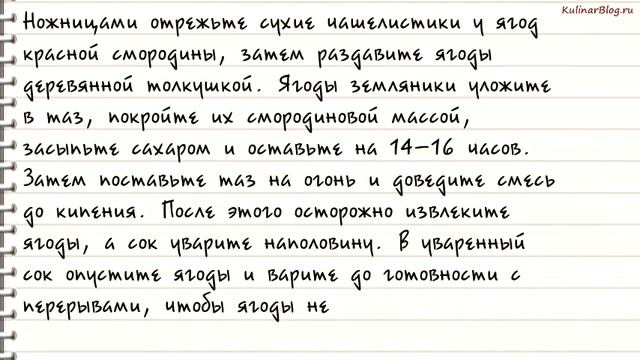 KulinarBlog.ru
Ножницами отрежьте сухие чашелистики у ягод
красной смородины, затем раздавите ягоды
деревянной толкушкой. Ягоды земляники уложите
в таз, покройте их смородиновой массой,
засыпьте сахаром и оставьте на 14–16 часов.
Затем поставьте таз на огонь и доведите смесь
до кипения. После этого осторожно извлеките
ягоды, а сок уварите наполовину. В уваренный
сок опустите ягоды и варите до готовности с
перерывами, чтобы ягоды не